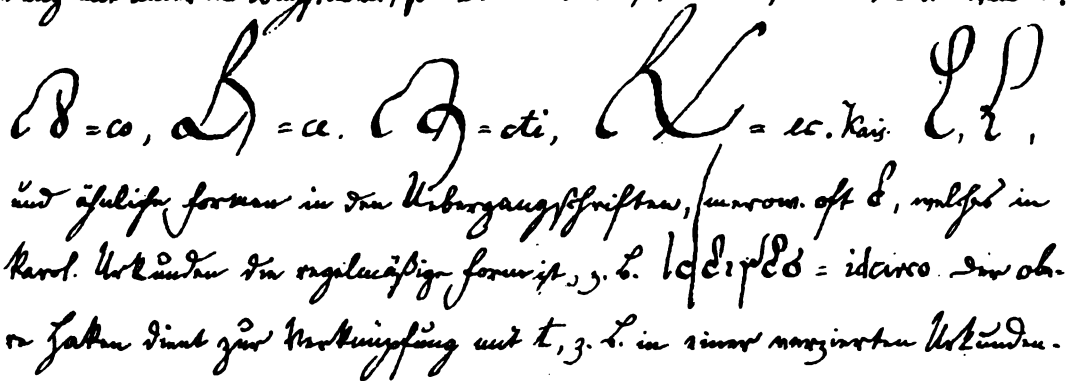 = co, = ce. = cti, = ec. Kais. ,
und ähnliche formen in den Uebergangsschriften, merow. oft , welches in
karol. Urkunden die regelmäßige form ist, z. B. = idcirco. Der obe-
re Haken dient zur Verknüpfung mit t, z. B. in einer verzierten Urkunden-